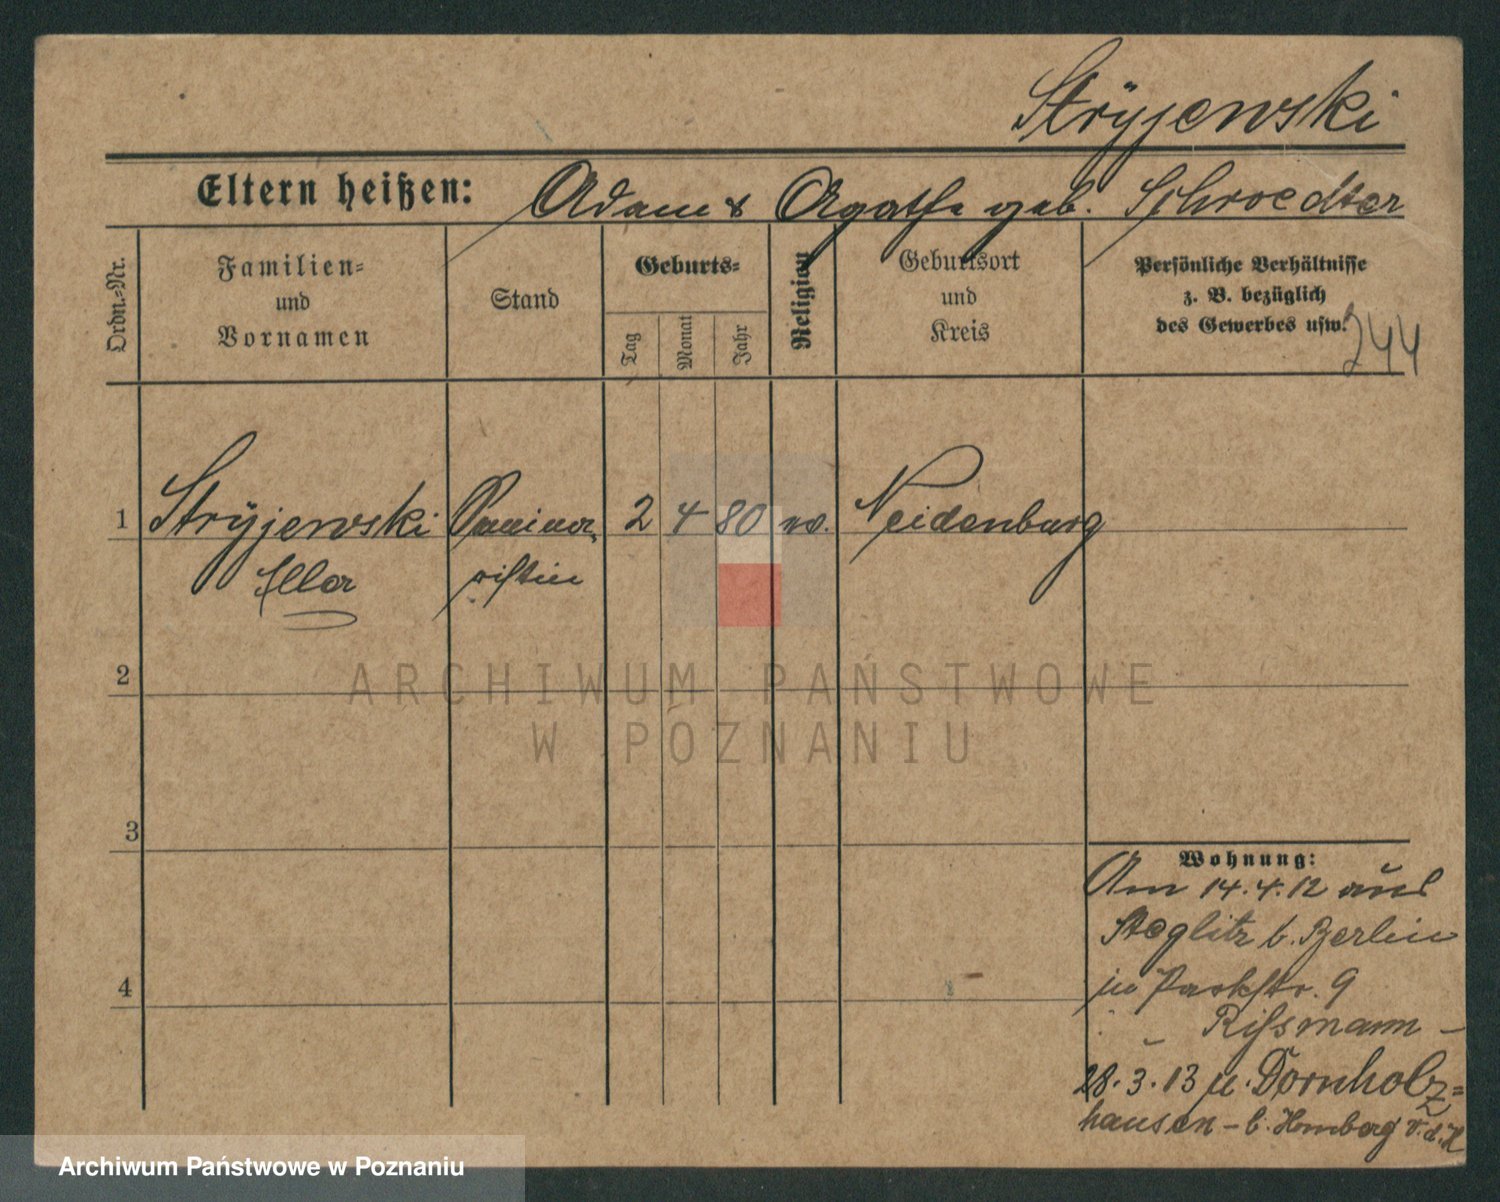 Stryjewski
Eltern heißen: Adam & Agathe geb. Schroedter
Ordn.=Nr.
Familien=
und
Vornamen
Stand
Geburts=
Tag
Monat
Jahr
Religion
Geburtsort
und
Kreis
Persönliche Verhältnisse
z. B. bezüglich
des Gewerbes usw.
244
1 Stryjewski 2 4 80 ev. Neidenburg
2
3
4
Wohnung:
Am 14.4.12 aus
Steglitz b. Berlin
in Parkstr. 9
Rissmann –
28.3.13 n. Dornholz=
hausen – b. Homberg v.d.H
ARCHIWUM PAŃSTWOWE
W POZNANIU
Archiwum Państwowe w Poznaniu